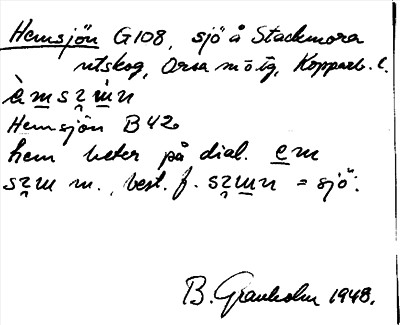 Hemsjön G108, sjö å Stackmora
utskog, Orsa m o tg, Kopparb. l.
Hemsjön B42
hem heter på dial. em
m., best. f. = sjö.
B. Granholm 1948.